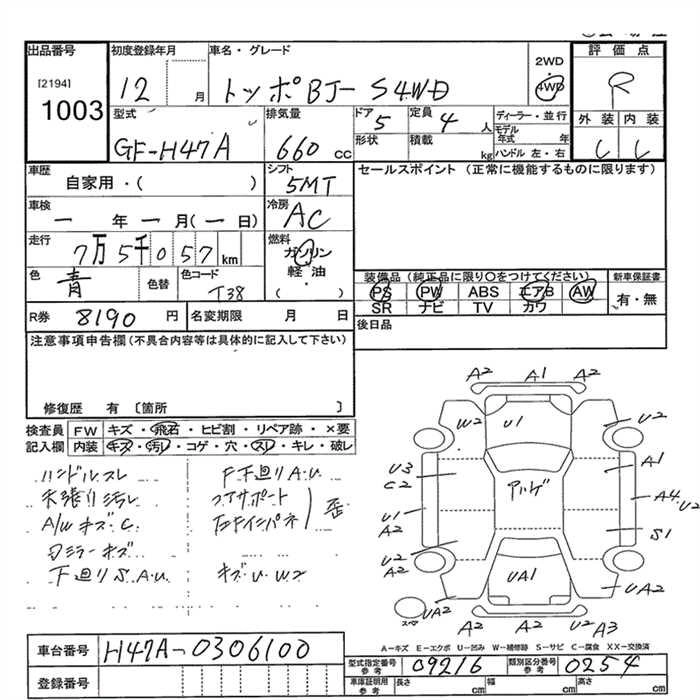 出品番号 初度登録年月 車名・グレード 2WD 評価点
[2194] 12 月 トッポBJ- S4WD 4WD R
1003
型式 排気量 ドア 5 定員 4 人 ディーラー・並行 外装 内装
GF-H47A 660 cc 形状 積載 kg モデル年式 年
ハンドル 左・右
車歴 シフト セールスポイント (正常に機能するものに限ります)
自家用・( ) 5MT
車検 冷房
― 年 ― 月(― 日) AC
走行 燃料
7万5千057km ガソリン
軽油
( )
色 青 色替 色コード T38
装備品 (純正品に限り○をつけてください) 新車保証書
PS PW ABS エアB AW 有・無
SR ナビ TV カワ
R券 8190 円 名変期限 月 日 後日品
注意事項申告欄 (不具合内容等は具体的に記入して下さい)
修復歴 有 〔箇所 〕
検査員 FW キズ・飛石・ヒビ割・リペア跡・×要
記入欄 内装 キズ・汚レ・コゲ・穴・スレ・キレ・破レ
ハンドルスレ F下廻りA.U
天張り汚レ コアサポート
A/WキズC. 右Fインパネ 歪
ミラーキズ
下廻りS.A.U キズU W2
A2 A1 A2
W2 U1 U2
U3 C2 アルゲ A1
U1 A2 A4 U2
S1
U2 A2 UA1 UA2
UA2 スペア A2 A2 U2 A3
A-キズ E-エクボ U-凹み W-補修跡 S-サビ C-腐食 XX-交換済
車台番号 H47A-0306100
型式指定番号 参考 09216 類別区分番号 参考 0254
登録番号 車庫証明用 参考 長さ cm 幅 cm 高さ cm